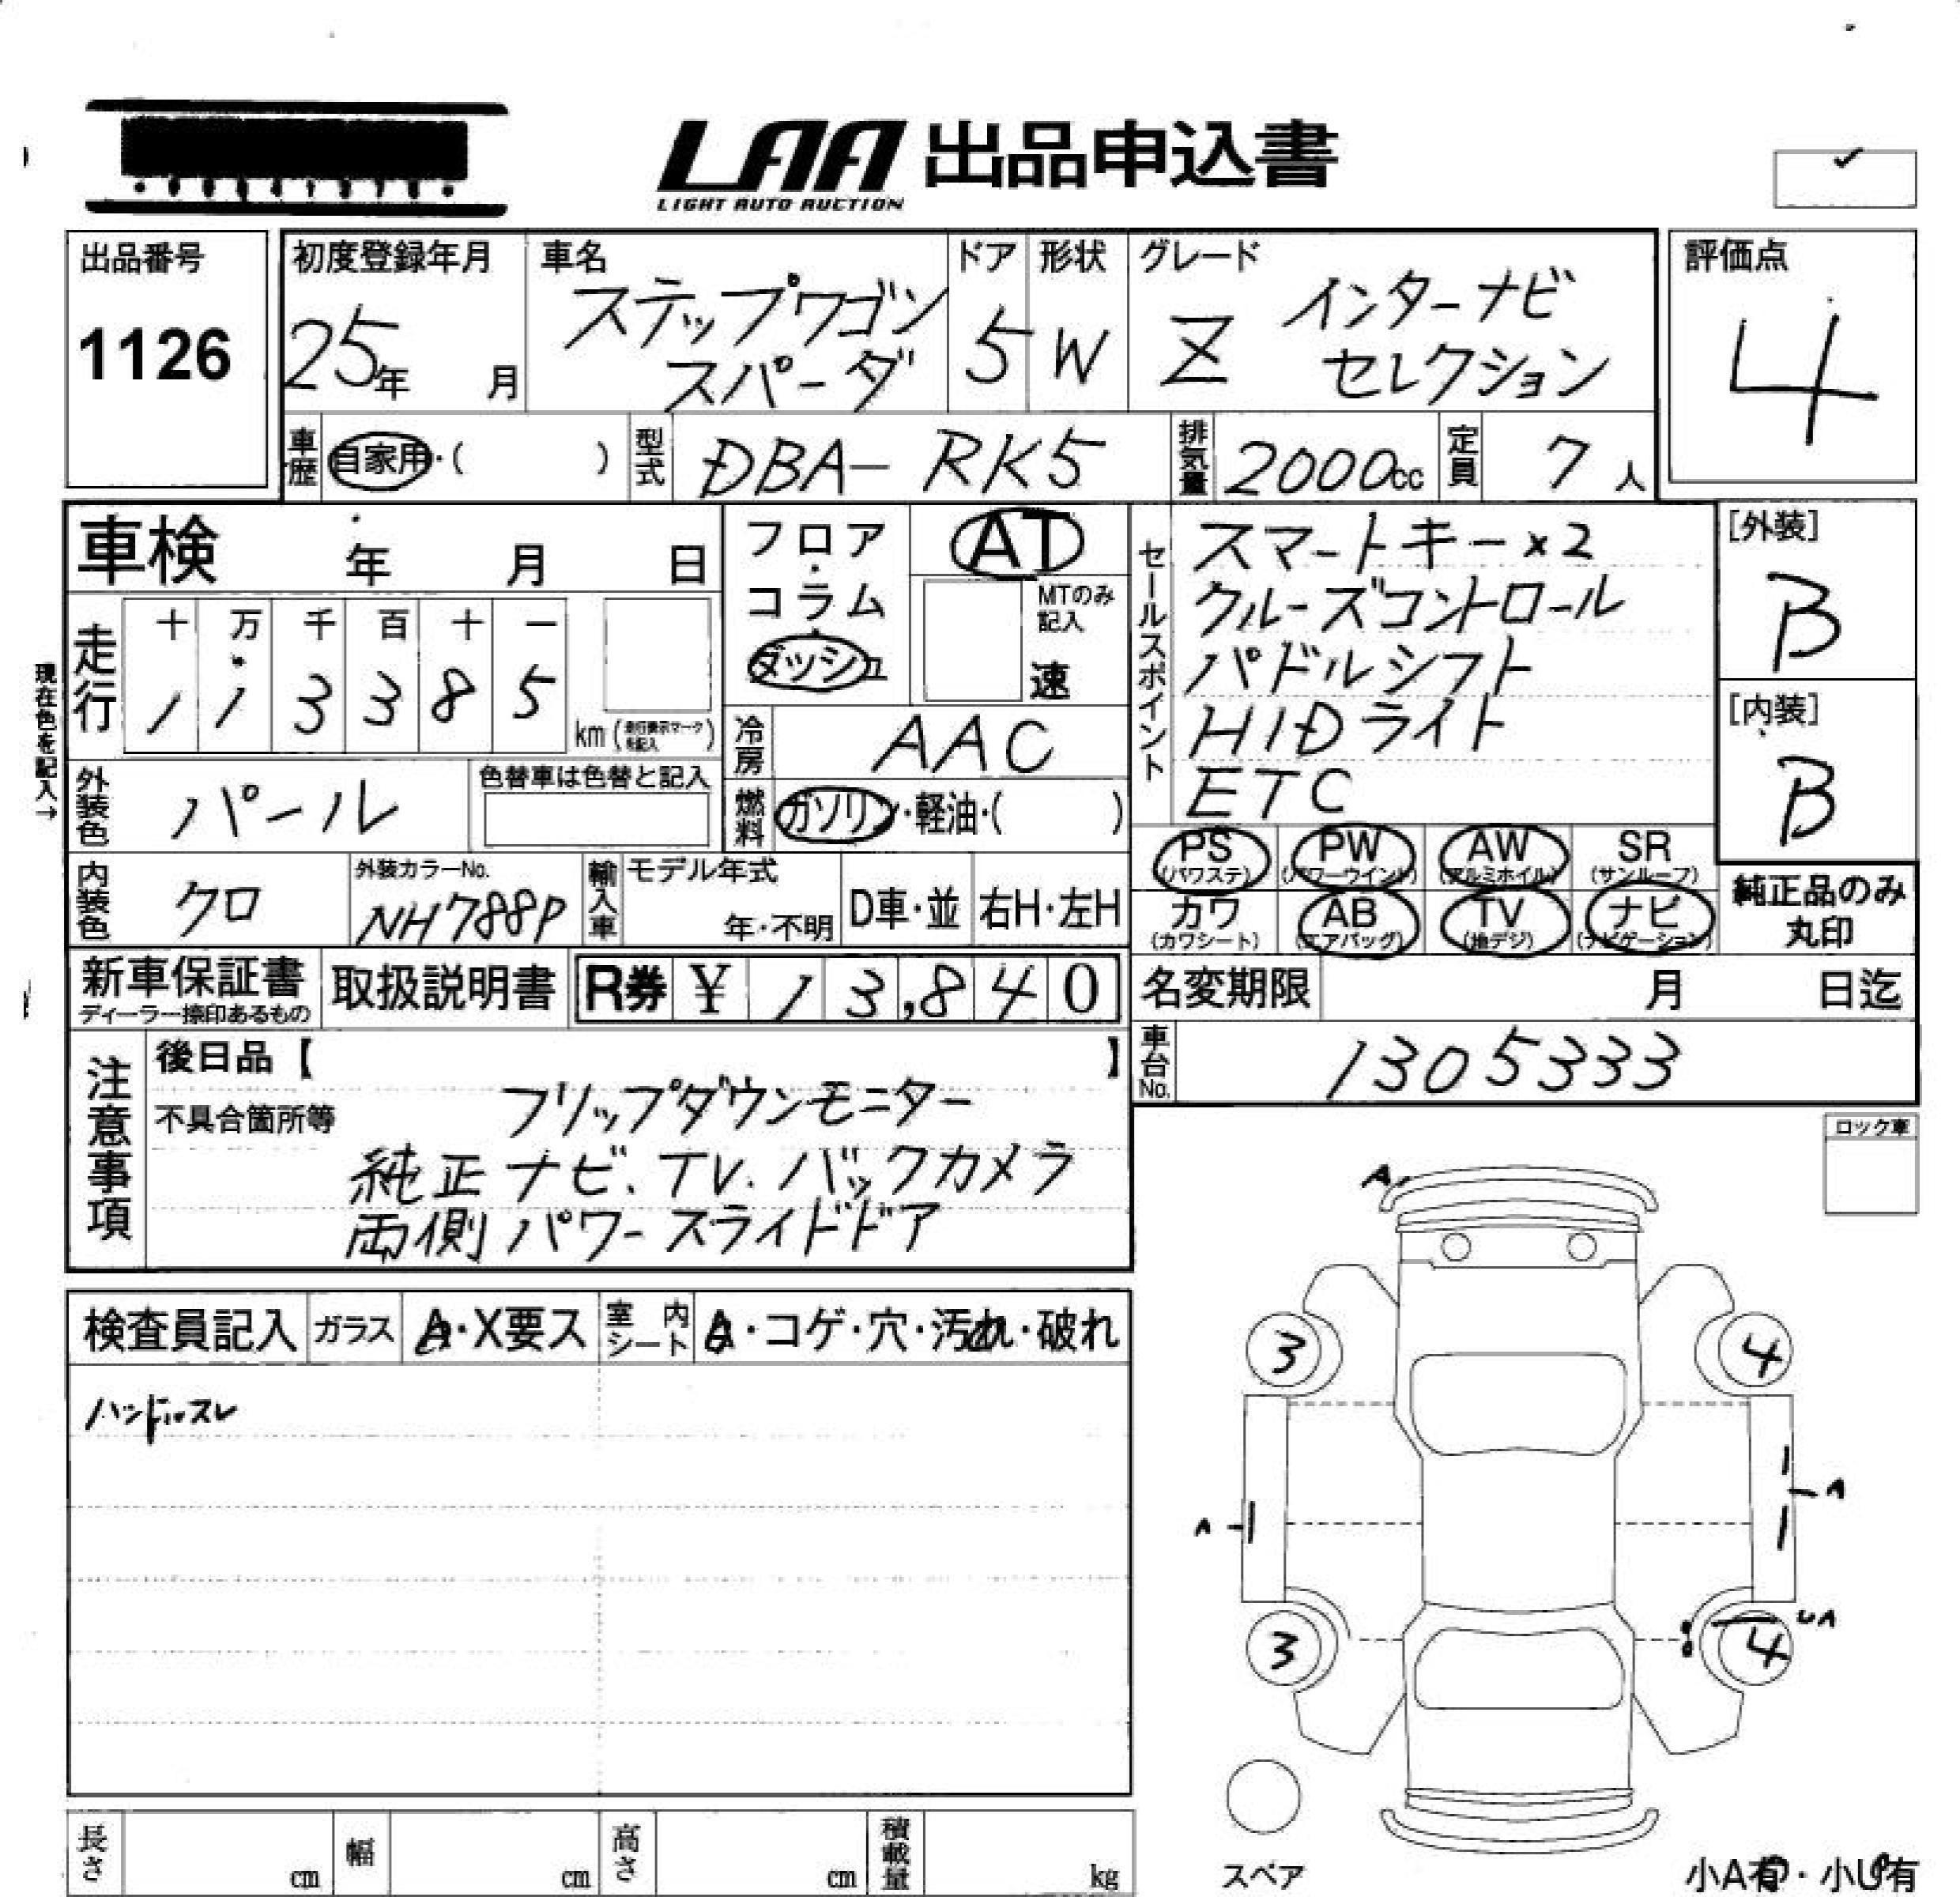 LAA 出品申込書
LIGHT AUTO AUCTION
出品番号
1126
初度登録年月
25年 月
車名
ステップワゴン
スパーダ
ドア
5
形状
W
グレード
Z インターナビ
セレクション
評価点
4
車歴 自家用・( )
型式 DBA- RK5
排気量 2000cc
定員 7人
車検 年 月 日
フロア・
コラム・
ダッシュ
AT
MTのみ
記入
速
走行
十 万 千 百 十 一
1 1 3 3 8 5
km (走行表示マークを記入)
現在色を記入→
冷房 AAC
外装色 パール
色替車は色替と記入
燃料 ガソリン・軽油・( )
セールスポイント
スマートキー×2
クルーズコントロール
パドルシフト
HIDライト
ETC
[外装]
B
[内装]
B
PS (パワステ)
PW (パワーウインド)
AW (アルミホイル)
SR (サンルーフ)
カワ (カワシート)
AB (エアバッグ)
TV (地デジ)
ナビ (ナビゲーション)
純正品のみ
丸印
内装色 クロ
外装カラーNo.
NH788P
輸入車
モデル年式
年・不明
D車・並
右H・左H
新車保証書
ディーラー捺印あるもの
取扱説明書
R券 ¥ 13,840
名変期限 月 日迄
車台No. 1305333
注意事項
後日品【 】
不具合箇所等
フリップダウンモニター
純正ナビ、TV、バックカメラ
両側パワースライドドア
ロック車
検査員記入
ガラス A・X要ス
室内シート A・コゲ・穴・汚れ・破れ
ハンドルスレ
A
3
4
A
A
3
4
UA
スペア
小A有・小U有
長さ cm
幅 cm
高さ cm
積載量 kg